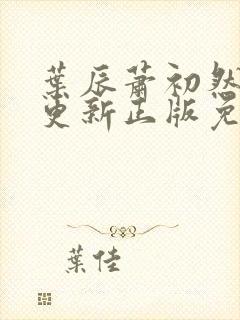 葉辰蕭初然
更新正版免
葉佳